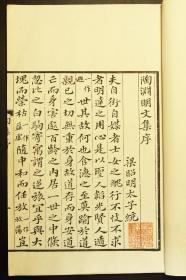 陶淵明文集序
梁昭明太子統
夫自衒自媒者士女之醜行不忮不求
者明達之用心是以聖人韜光賢人
一作世其故何也含德之至莫踰於道
親已之切無重於身故道存而身安道
亡而身害處百齡之內居一世之中倏
忽比之白駒寄寓謂之逆旅宜乎與大
塊而榮枯隨中和而任放豈